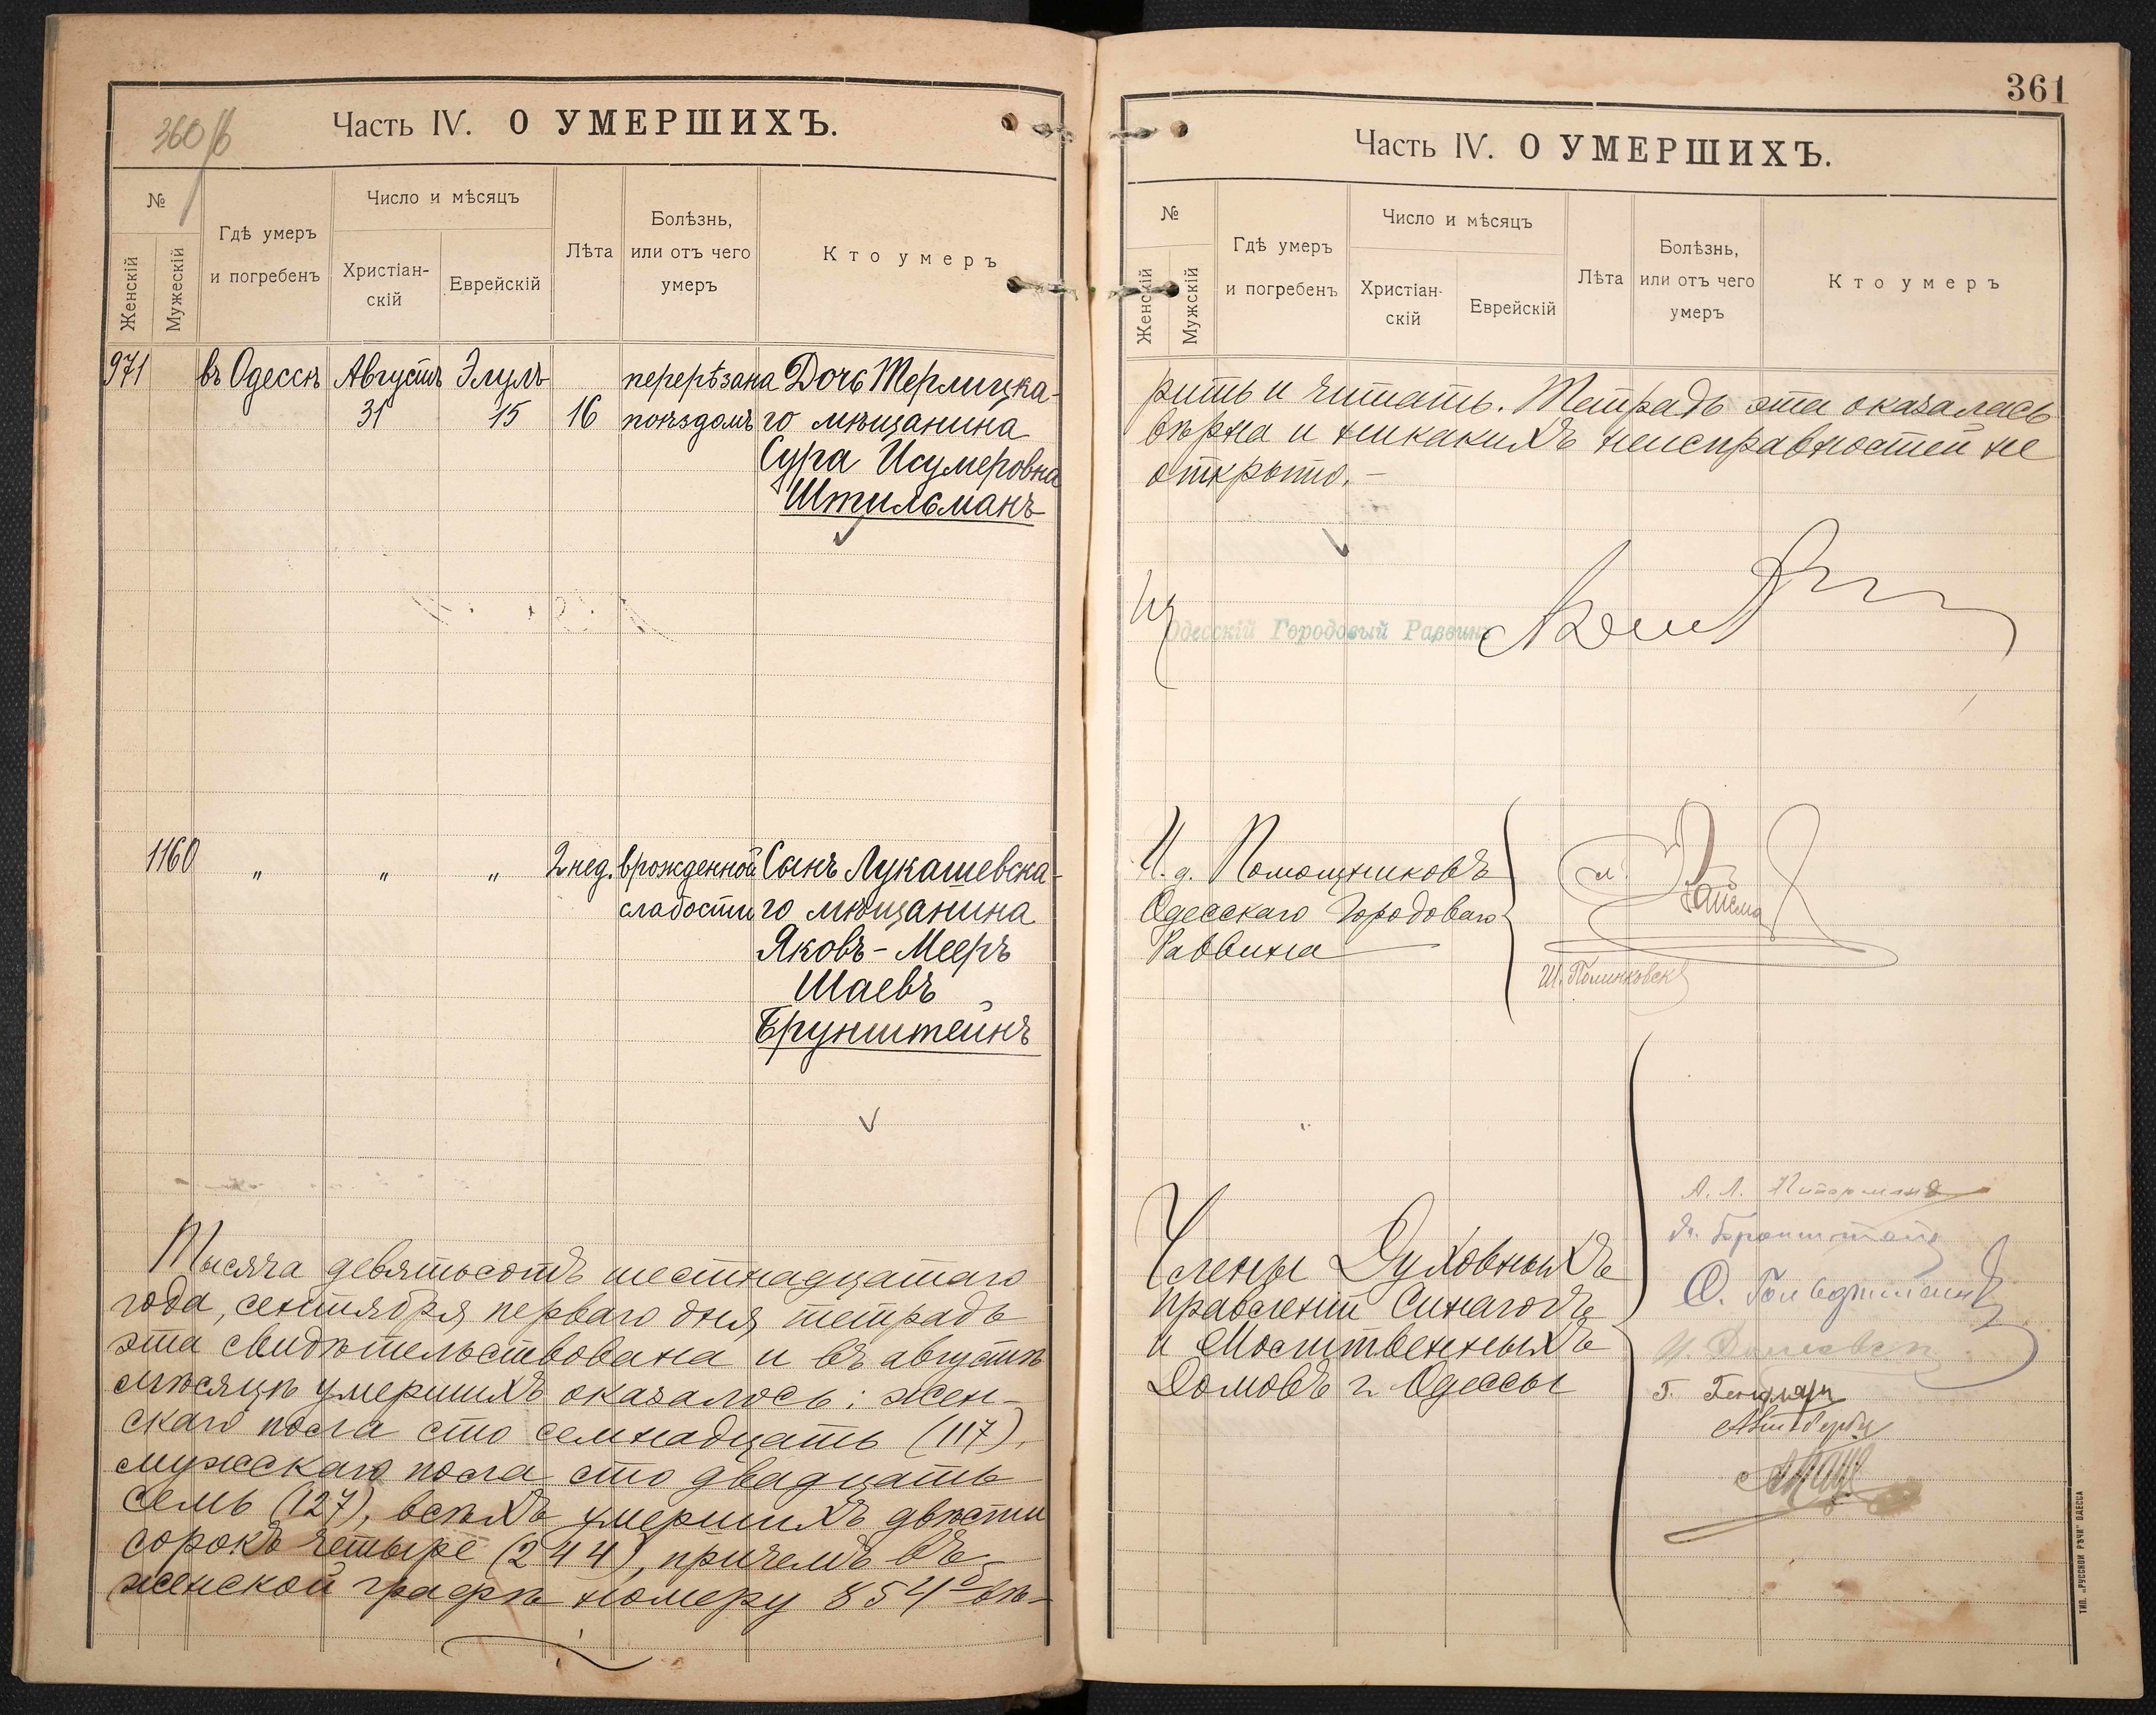 360/б
Часть IV. О УМЕРШИХЪ.
№
Женскій
Мужескій
Гдѣ умеръ
и погребенъ
Число и мѣсяцъ
Христіан-
скій
Еврейскій
Лѣта
Болѣзнь,
или отъ чего
умеръ
Кто умеръ
971 въ Одессѣ Августъ Элулъ перерѣзана Дочь Терлицка-
31 15 16 поѣздомъ го мѣщанина
Сура Исумеровна
Штильманъ
1160 „ „ „ 2 нед. врожденной Сынъ Лукашевска-
слабости го мѣщанина
Яковъ-Мееръ
Шаевъ
Брунштейнъ
Тысяча девятьсотъ шестнадцатаго
года, сентября перваго дня, тетрадь
эта свидѣтельствована и въ августѣ
мѣсяцѣ умершихъ оказалось: жен-
скаго пола сто семнадцать (117),
мужескаго пола сто двадцать
семь (127), всѣхъ умершихъ двѣсти
сорокъ четыре (244), причемъ въ
женской графѣ номеру 854
361
Часть IV. О УМЕРШИХЪ.
№
Женскій
Мужскій
Гдѣ умеръ
и погребенъ
Число и мѣсяцъ
Христіан-
скій
Еврейскій
Лѣта
Болѣзнь,
или отъ чего
умеръ
Кто умеръ
рить и читать. Тетрадь эта оказалась
вѣрна и никакихъ неисправностей не
открыто.-
Одесскій Городовый Раввинъ
И. д. Помощниковъ
Одесскаго Городоваго
Раввина
Членъ Духовныхъ
правленій Синагогъ
и Молитвенныхъ
Домовъ г. Одессы
ТИП. „РУССКОЙ РѢЧИ“ ОДЕССА